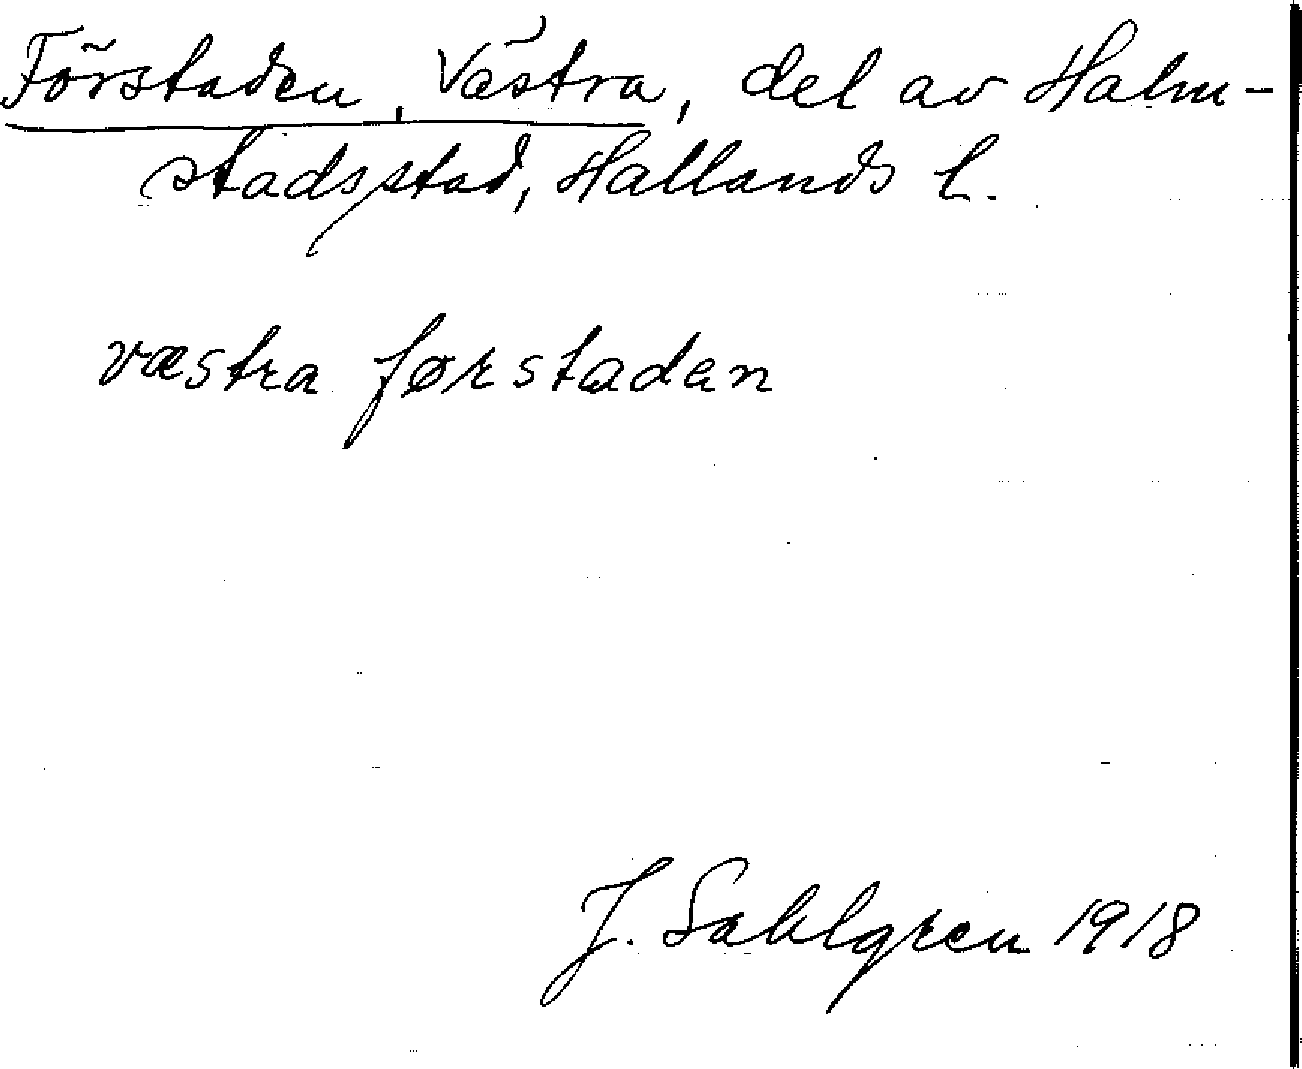 Förstaden, Västra, del av Halm-
stads stad, Hallands l.
væstra førstadan
J. Sahlgren 1918